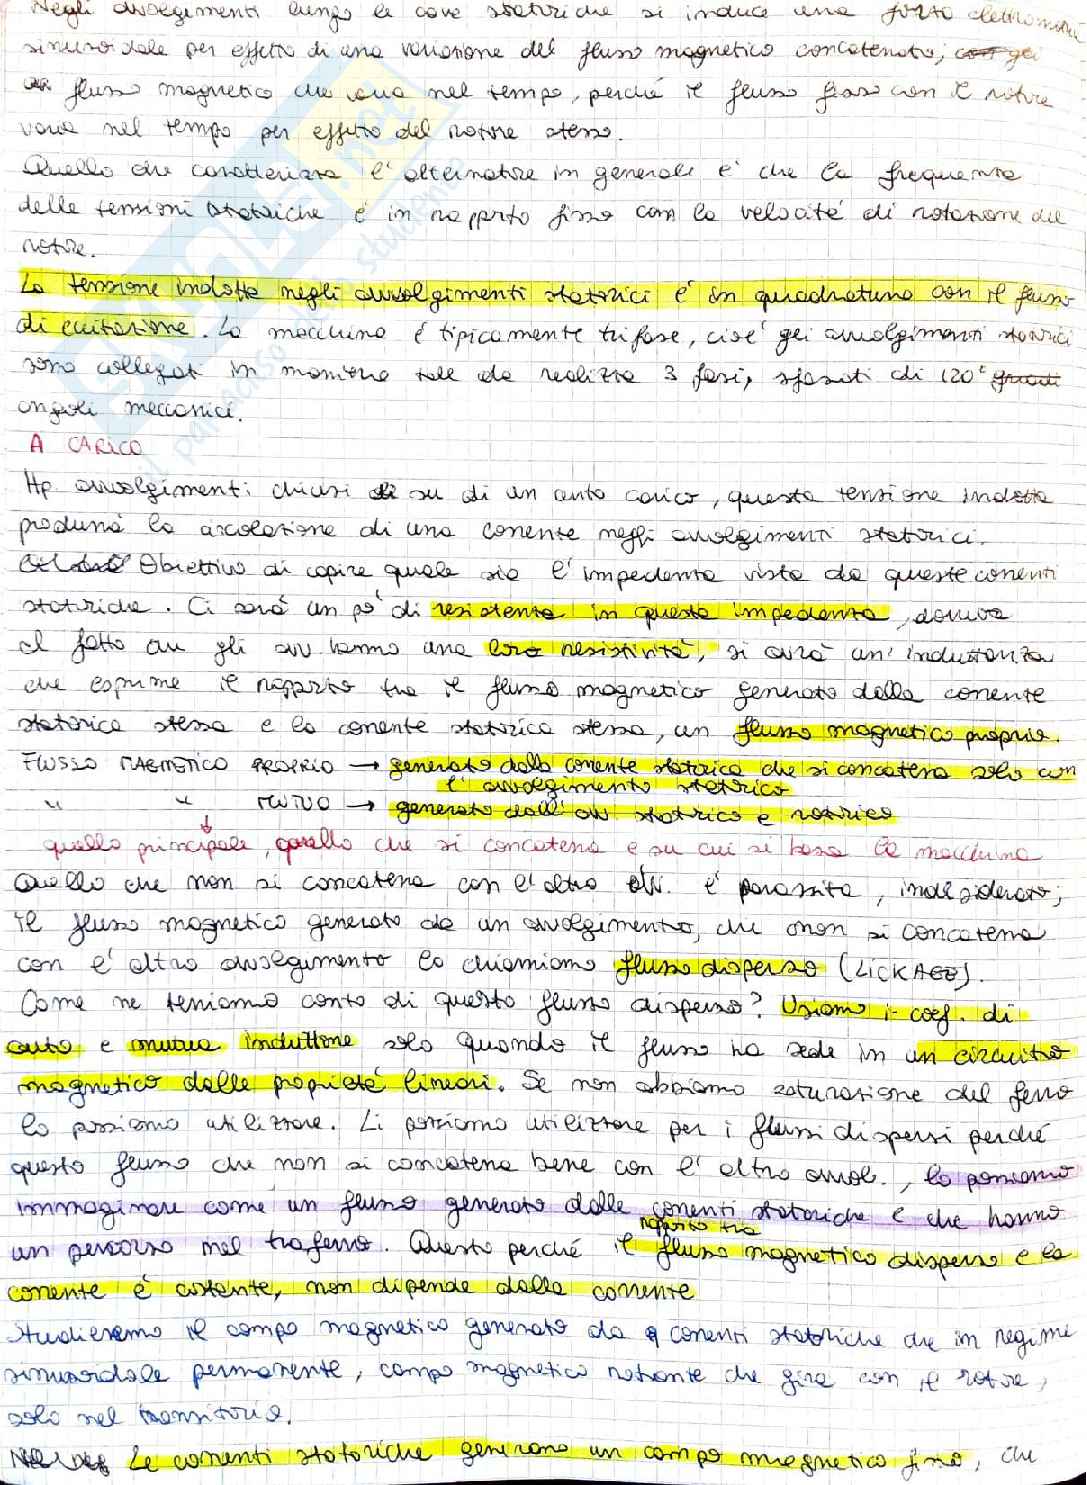 Negli avvolgimenti lungo le cave statoriche si induce una forza elettromotrice
sinusoidale per effetto di una variazione del flusso magnetico concatenato,
flusso magnetico che varia nel tempo, perché il flusso fisso con il rotore
varia nel tempo per effetto del rotore stesso.
Quello che caratterizza l'alternatore in generale è che la frequenza
delle tensioni statoriche è in rapporto fisso con la velocità di rotazione del
rotore.
La tensione indotta negli avvolgimenti statorici è in quadratura con il flusso
di eccitazione. La macchina è tipicamente trifase, cioè gli avvolgimenti statorici
sono collegati in maniera tale da realizzare 3 fasi, sfasati di 120° gradi
angoli meccanici.
A CARICO
Hp. avvolgimenti chiusi su di un certo carico, questa tensione indotta
produrrà la circolazione di una corrente negli avvolgimenti statorici.
Obiettivo di capire quale sia l'impedenza vista da queste correnti
statoriche. Ci sarà un pò di resistenza in questa impedenza, dovuta
al fatto che gli avv hanno una loro resistività, si avrà un'induttanza
che esprime il rapporto tra il flusso magnetico generato dalla corrente
statorica stessa e la corrente statorica stessa, un flusso magnetico proprio.
FLUSSO MAGNETICO PROPRIO → generato dalla corrente statorica che si concatena solo con
l'avvolgimento statorico
" " MUTUO → generato dall'avv statorico e rotorico
quello principale, quello che si concatena e su cui si basa la macchina
Quello che non si concatena con l'altro avv. è parassita, indesiderato;
il flusso magnetico generato da un avvolgimento, che non si concatena
con l'altro avvolgimento lo chiamiamo flusso disperso (LICKAGE).
Come ne teniamo conto di questo flusso disperso? Usiamo i coef. di
auto e mutua induttione solo quando il flusso ha sede in un circuito
magnetico dalle proprietà lineari. Se non abbiamo saturazione del ferro
lo possiamo utilizzare. Li possiamo utilizzare per i flussi dispersi perché
questo flusso che non si concatena bene con l'altro avvol., lo possiamo
immaginare come un flusso generato dalle correnti statoriche e che hanno
rapporto tra
un percorso nel traferro. Questo perché il flusso magnetico disperso e la
corrente è costante, non dipende dalla corrente
Studieremo il campo magnetico generato da correnti statoriche che in regime
sinusoidale permanente, campo magnetico rotante che gira con il rotore,
solo nel transitorio.
Le correnti statoriche generano un campo magnetico fisso, che